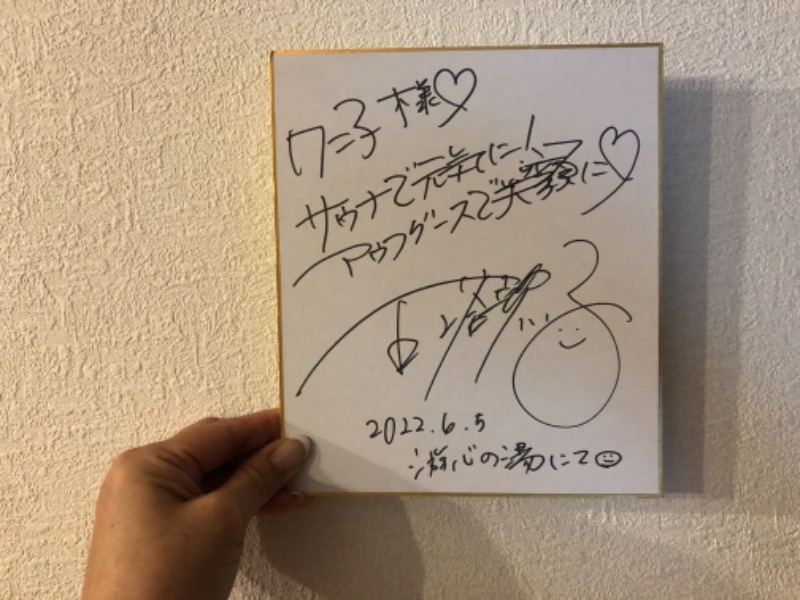 ワニ子様♡
サウナで元気に!
アウフグースで笑顔に♡
2022.6.5
游心の湯にて